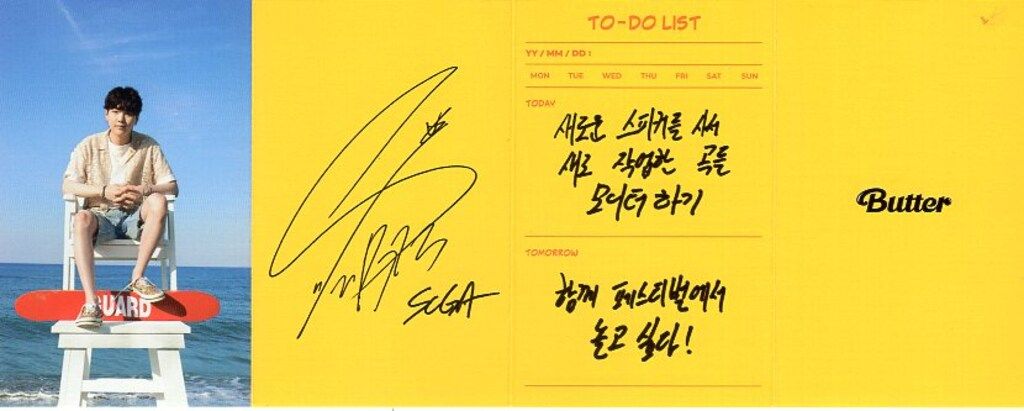 GUARD
SUGA
TO-DO LIST
YY / MM / DD :
MON TUE WED THU FRI SAT SUN
TODAY
새로운 스피커를 사서
새로 작업한 곡들
모니터 하기
TOMORROW
함께 페스티벌에서
놀고 싶다!
Butter